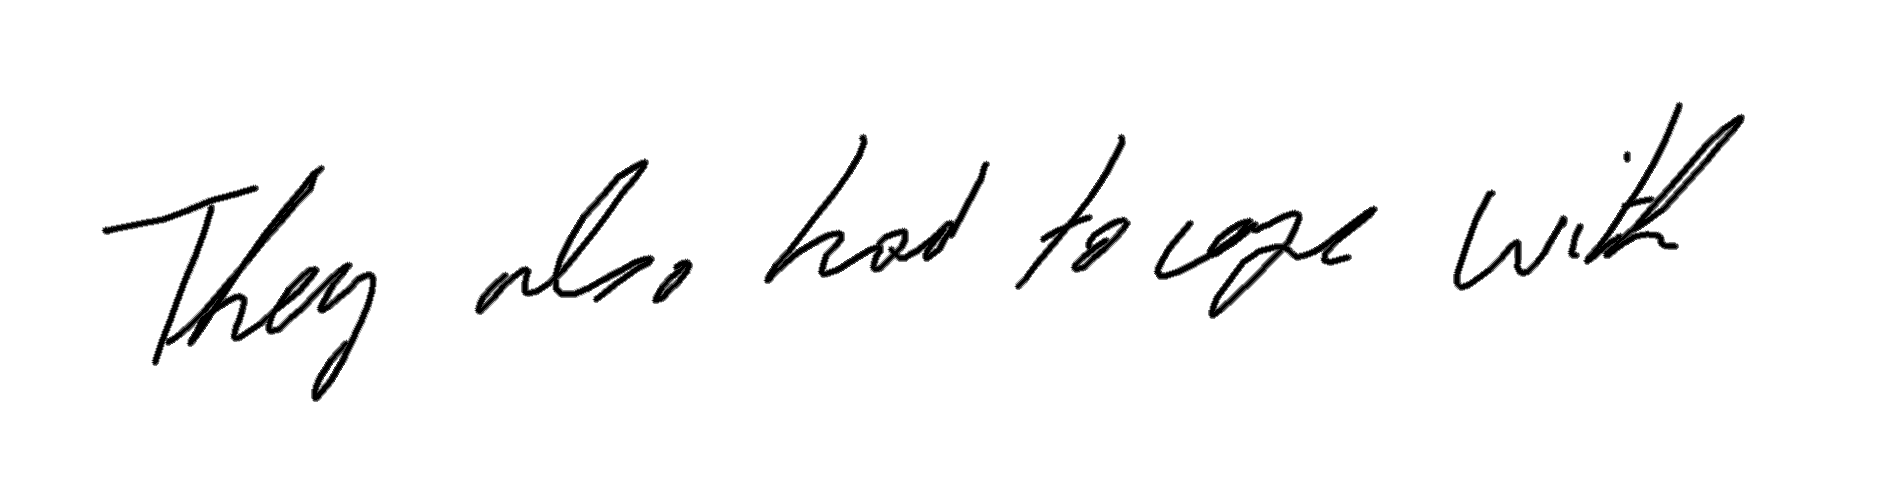 They also had to cope with